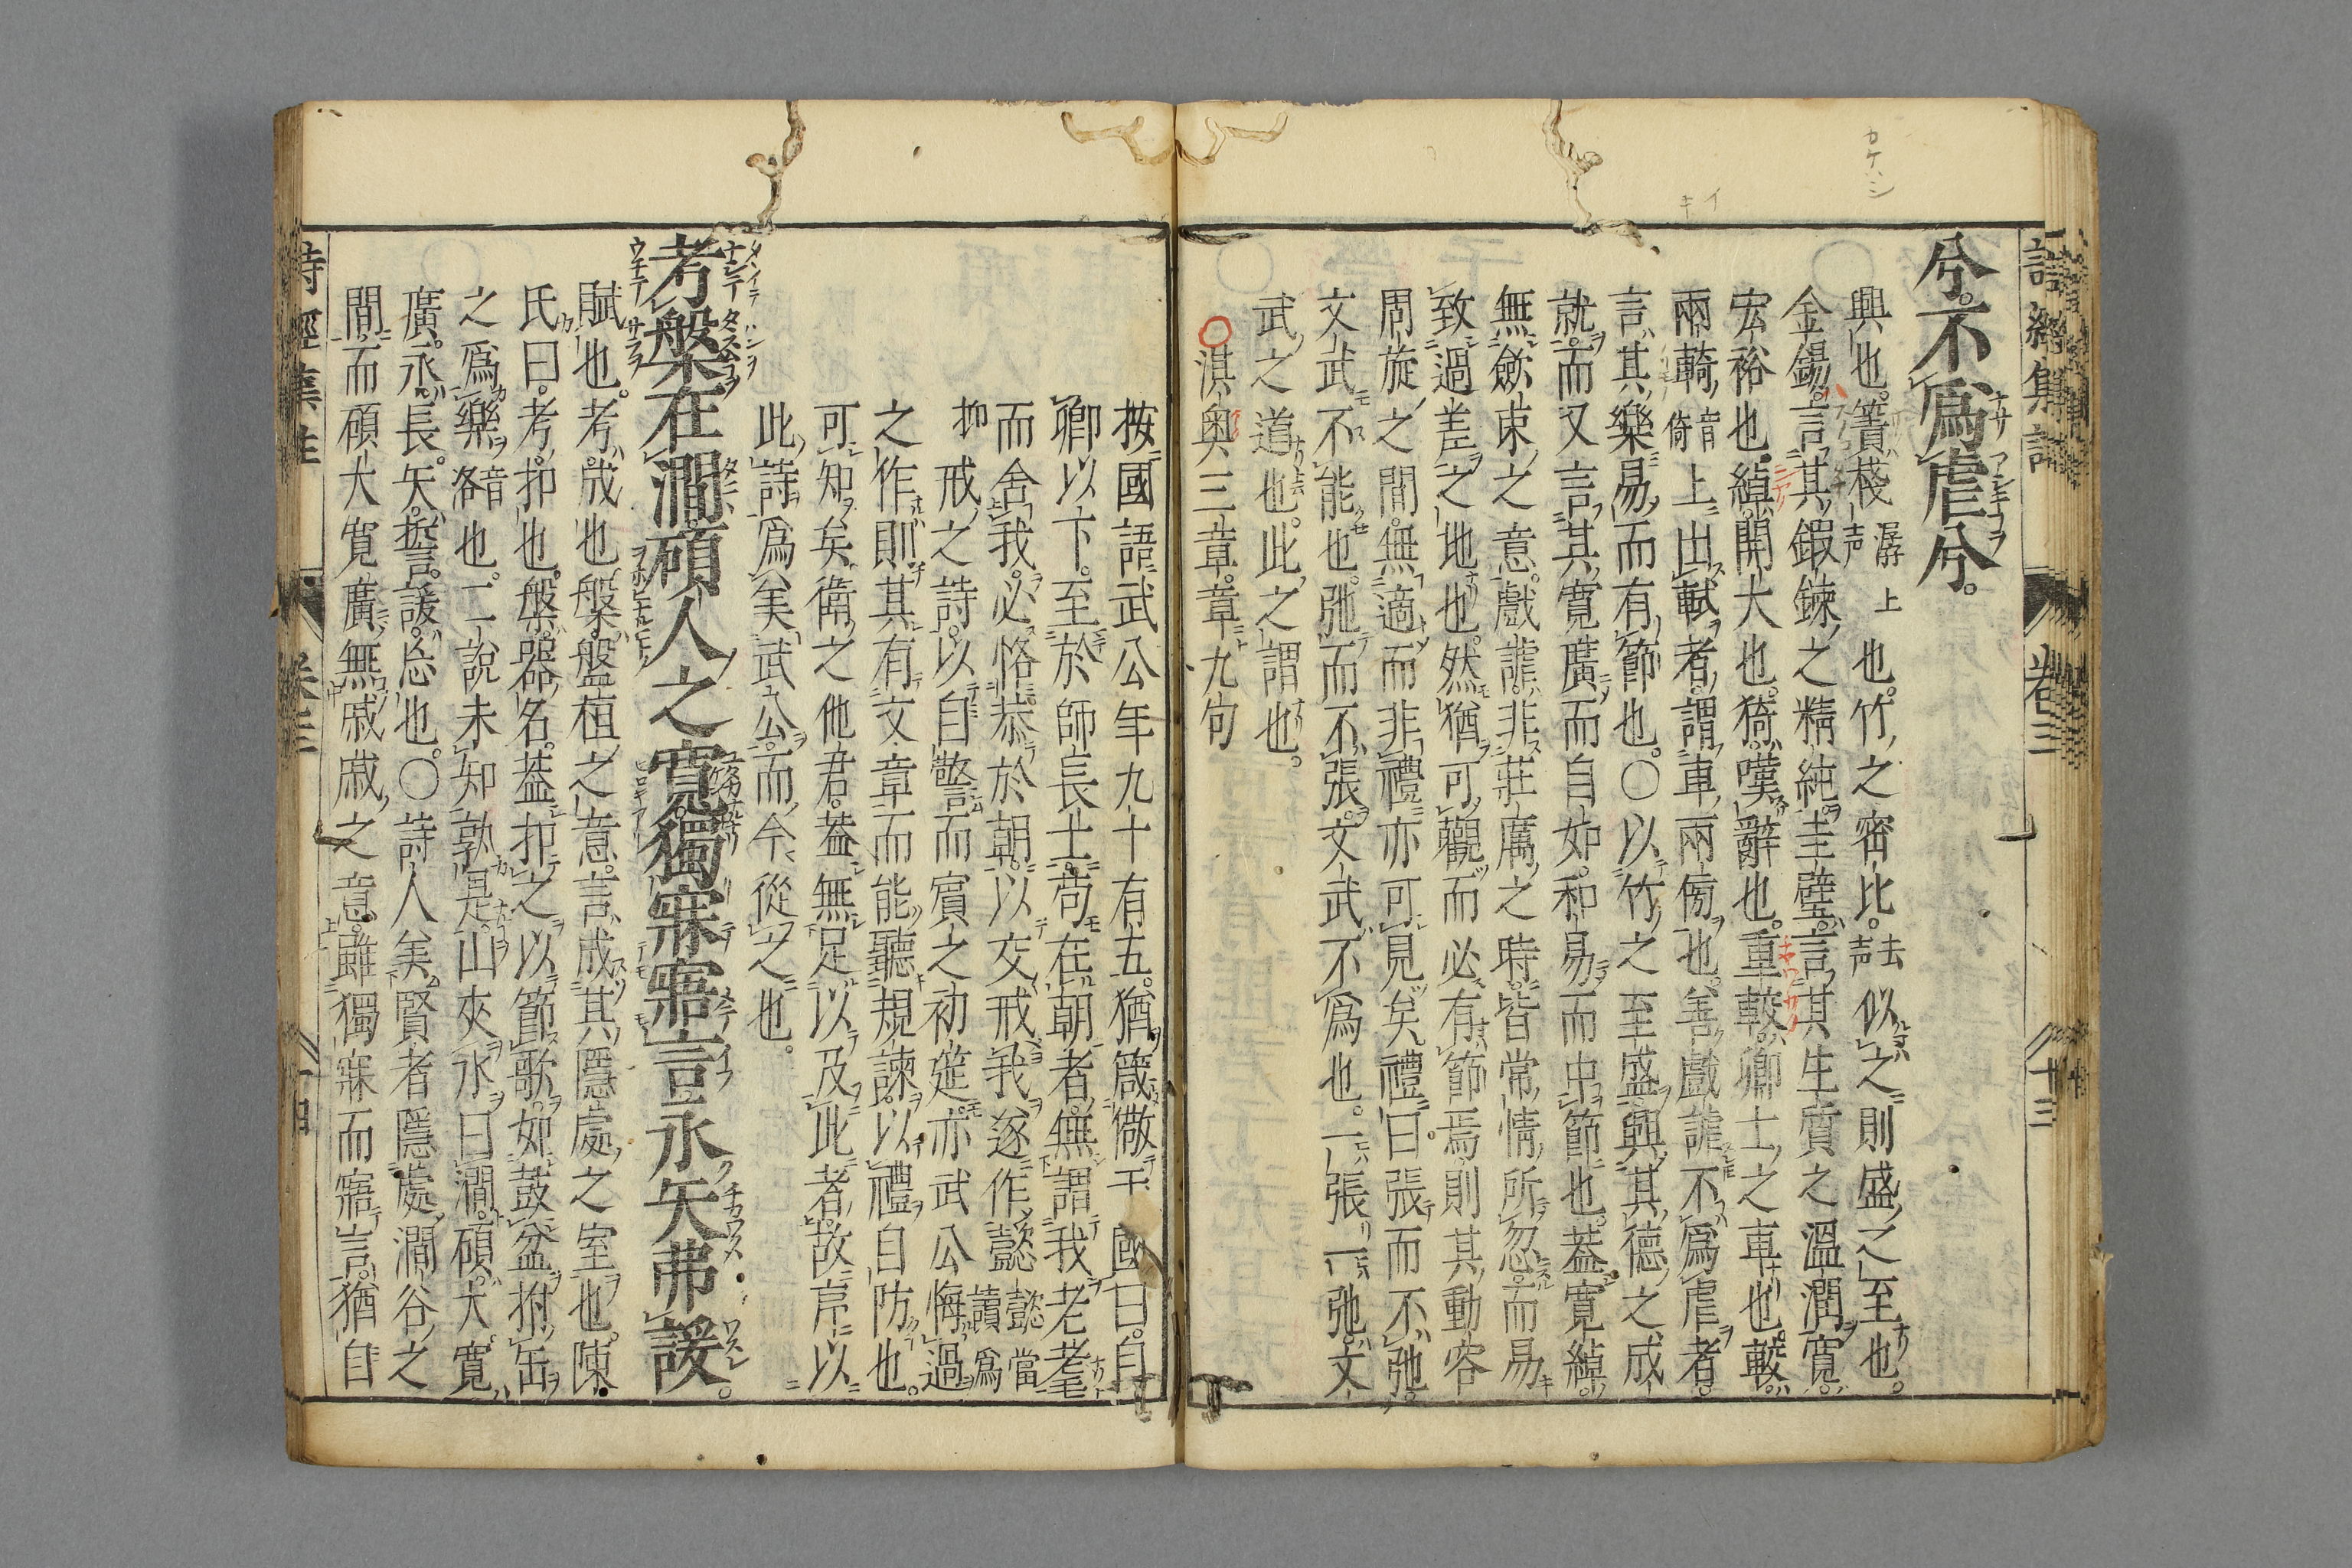 兮。不爲虐兮。
興也。簀棧也。竹之密比。似之則盛之至也。
金錫。言其鍛鍊之精純。圭璧。言其生質之溫潤。寬。
宏裕也。綽。開大也。猗。嘆辭也。重較。卿士之車也。較。
兩輢上出軾者。謂車兩傍也。善戲謔不爲虐者。
言其樂易而有節也。○以竹之至盛。興其德之成
就。而又言其寬廣而自如。和易而中節也。蓋寬綽。
無歛束之意。戲謔。非莊厲之時。皆常情所忽。而易
致過差之地也。然猶可觀而必有節焉。則其動容
周旋之間。無適而非禮。亦可見矣。禮曰。張而不弛。
文武不能也。弛而不張。文武不爲也。一張一弛。文
武之道也。此之謂也。
○淇奧三章。章九句
按國語。武公年九十有五。猶箴儆于國曰。自
卿以下。至於師長士。苟在朝者。無謂我老耄
而舍我。必恪恭於朝。以交戒我。遂作懿懿當讀爲
抑戒之詩。以自警。而賓之初筵。亦武公悔過
之作。則其有文章而能聽規諫。以禮自防也。
可知矣。衛之他君。蓋無足以及此者。故序以
此詩爲美武公。而今從之也。
考槃在澗。碩人之寬。獨寐寤言。永矢弗諼。
賦也。考。成也。槃。盤桓之意。言成其隱處之室也。陳
氏曰。考。扣也。槃。器名。蓋扣之以節歌。如鼓盆拊缶
之爲樂音各也。二說未知孰是。山夾水曰澗。碩。大。寬。
廣。永。長。矢。誓。諼。忘也。○詩人美賢者隱處澗谷之
間。而碩大寬廣。無戚戚之意。雖獨寐而寤言。猶自
詩經集註
卷三
十三